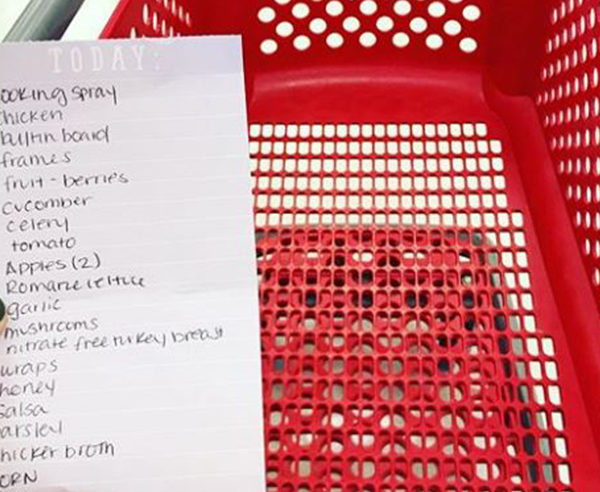 TODAY:
ooking spray
hicken
bulltin board
frames
fruit - berries
cucomber
celery
tomato
Apples (2)
Romane lettuce
garlic
mushrooms
nitrate free turkey breast
wraps
honey
salsa
arsley
hicken broth
ORN